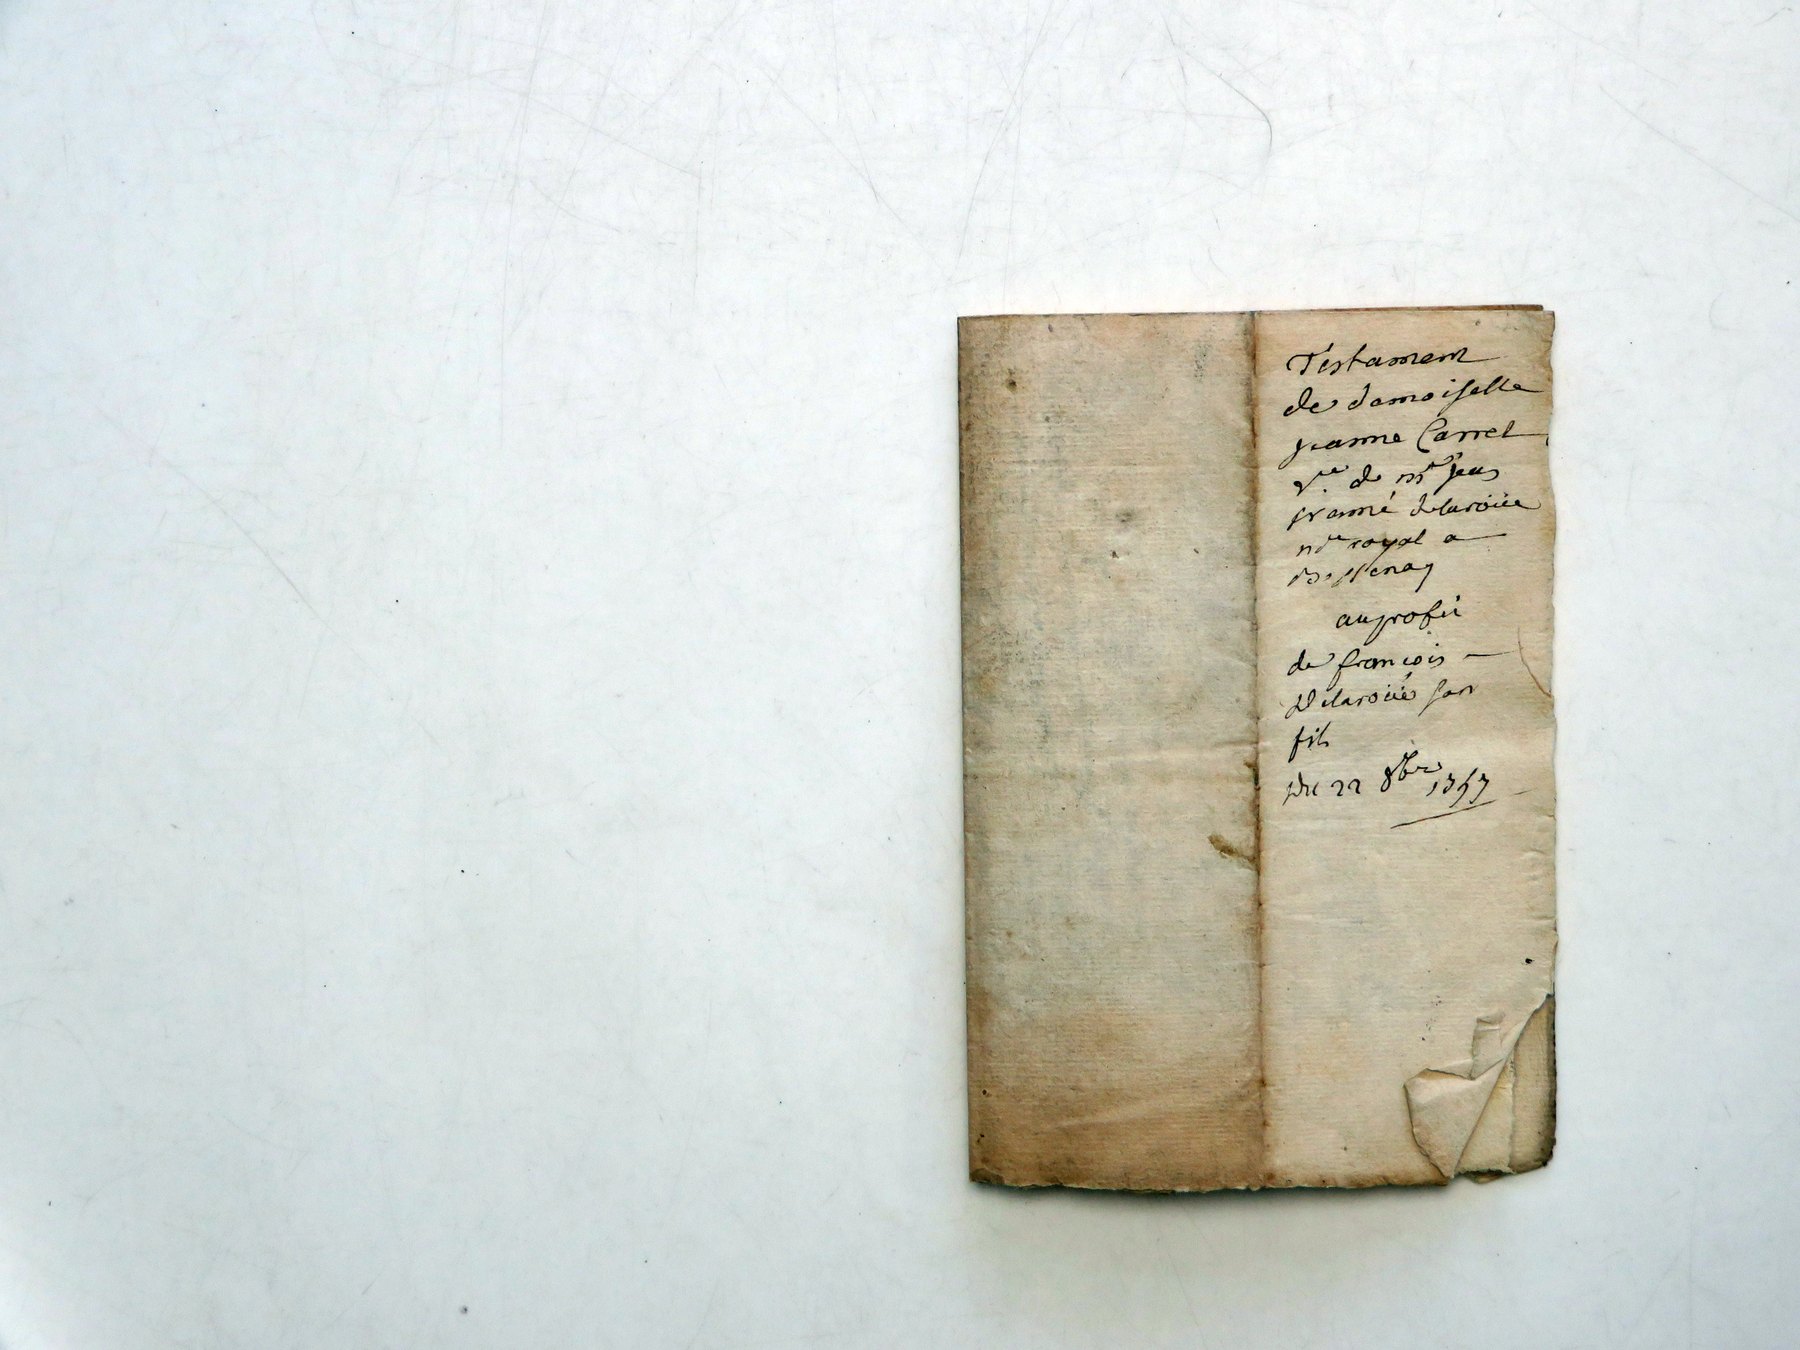 Testament
de damoiselle
jeanne Carret
v.ve de mre jean
françois delaroüe
nre royal a
Bessenay
au profit
de francois —
Delaroüe son
fils
Du 22 8bre 1757